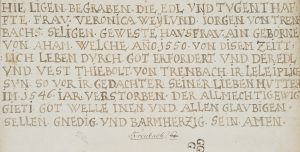 HIE LIGEN BEGRABEN DIE EDL VND TVGENTHAF
TE FRAV VERONICA WEYLVND IORGEN VON TREN
BACHS SELIGEN GEWESTE HAVSFRAV AIN GEBORNE
VON AHAM WELCHE AÑO 1550 VON DISEM ZEITT
LICH LEBEN DVRCH GOT ERFORDERT VND DER EDL
VND VEST THIEBOLT VON TRENBACH IR LEIPLICH
SVN SO VOR IR GEDACHTER SEINER LIEBEN MVTTER
IM 1546 IAR VERSTORBEN DER ALLMECHTIG EWIG
GIETI GOT WELLE INEN VND ALLEN GLAVBIGEN
SELLEN GNEDIG VND BARMHERZIG SEIN AMEN
Trenbach